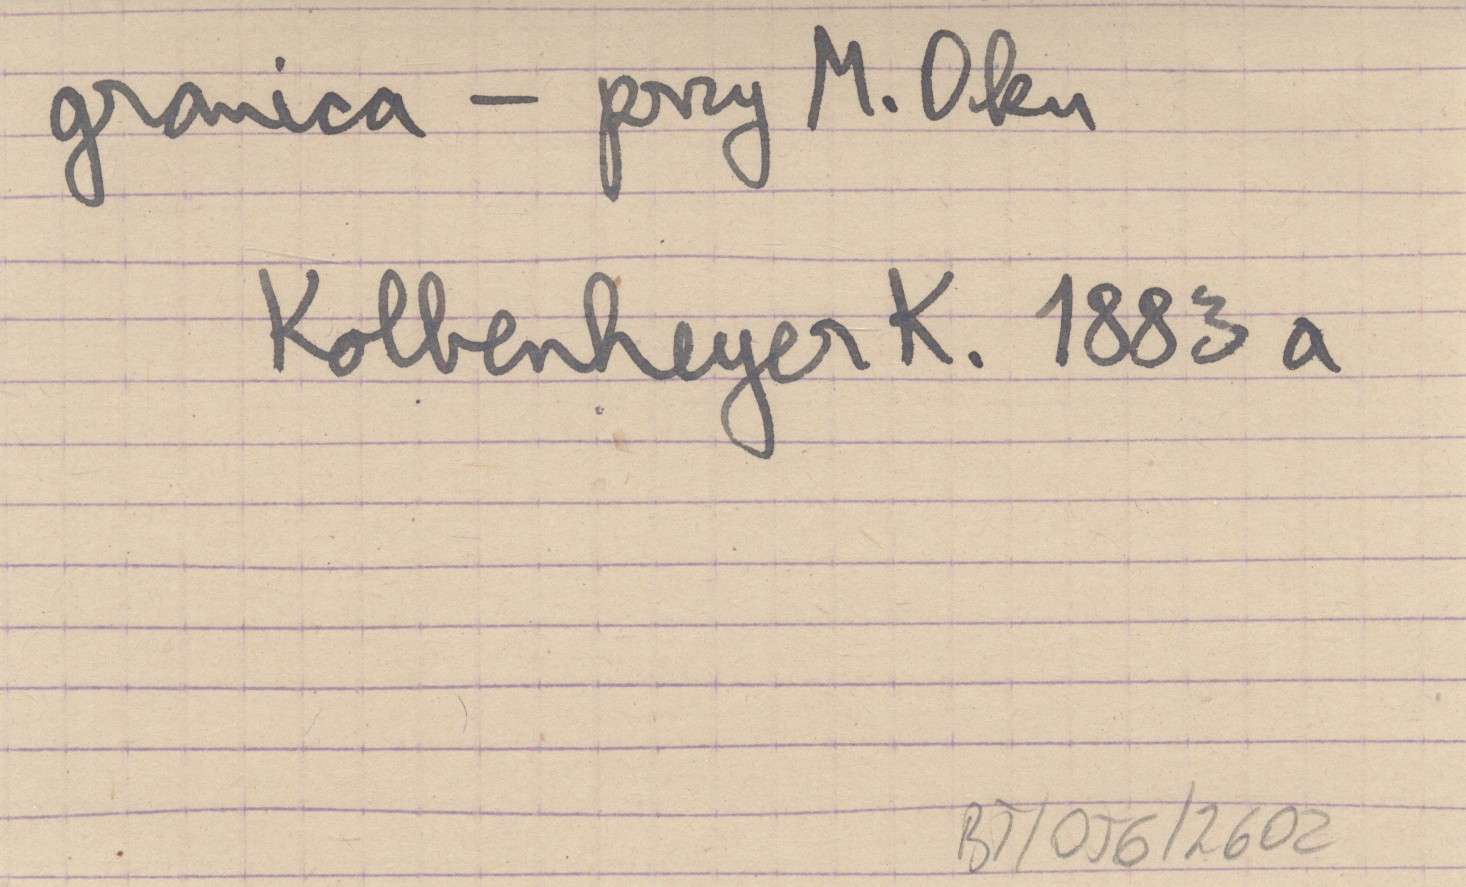 granica – przy M. Oku
Kolbenheyer K. 1883 a
BT/OJG/2602